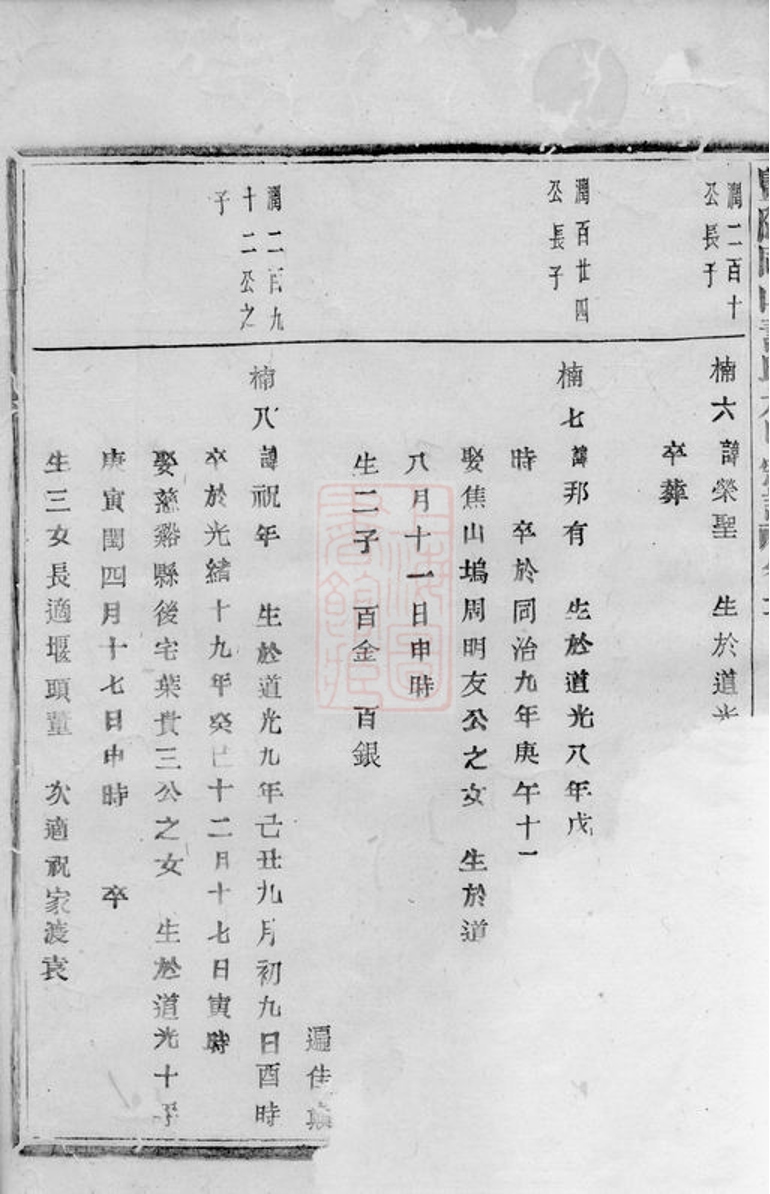 潤二百十
公長子
楠六 諱榮聖 生於道光
卒葬
潤百廿四
公長子
楠七 諱邦有 生於道光八年戊
時 卒於同治九年庚午十一
娶焦山塢周明友公之女 生於道
八月十一日申時
生二子 百金 百銀
遍佳
潤二百九
十二公之
子
楠八 諱祝年 生於道光九年己丑九月初九日酉時
卒於光緒十九年癸巳十二月十七日寅時
娶慈谿縣後宅葉貴三公之女 生於道光十年
庚寅閏四月十七日申時 卒
生三女長適堰頭董 次適祝家渡袁